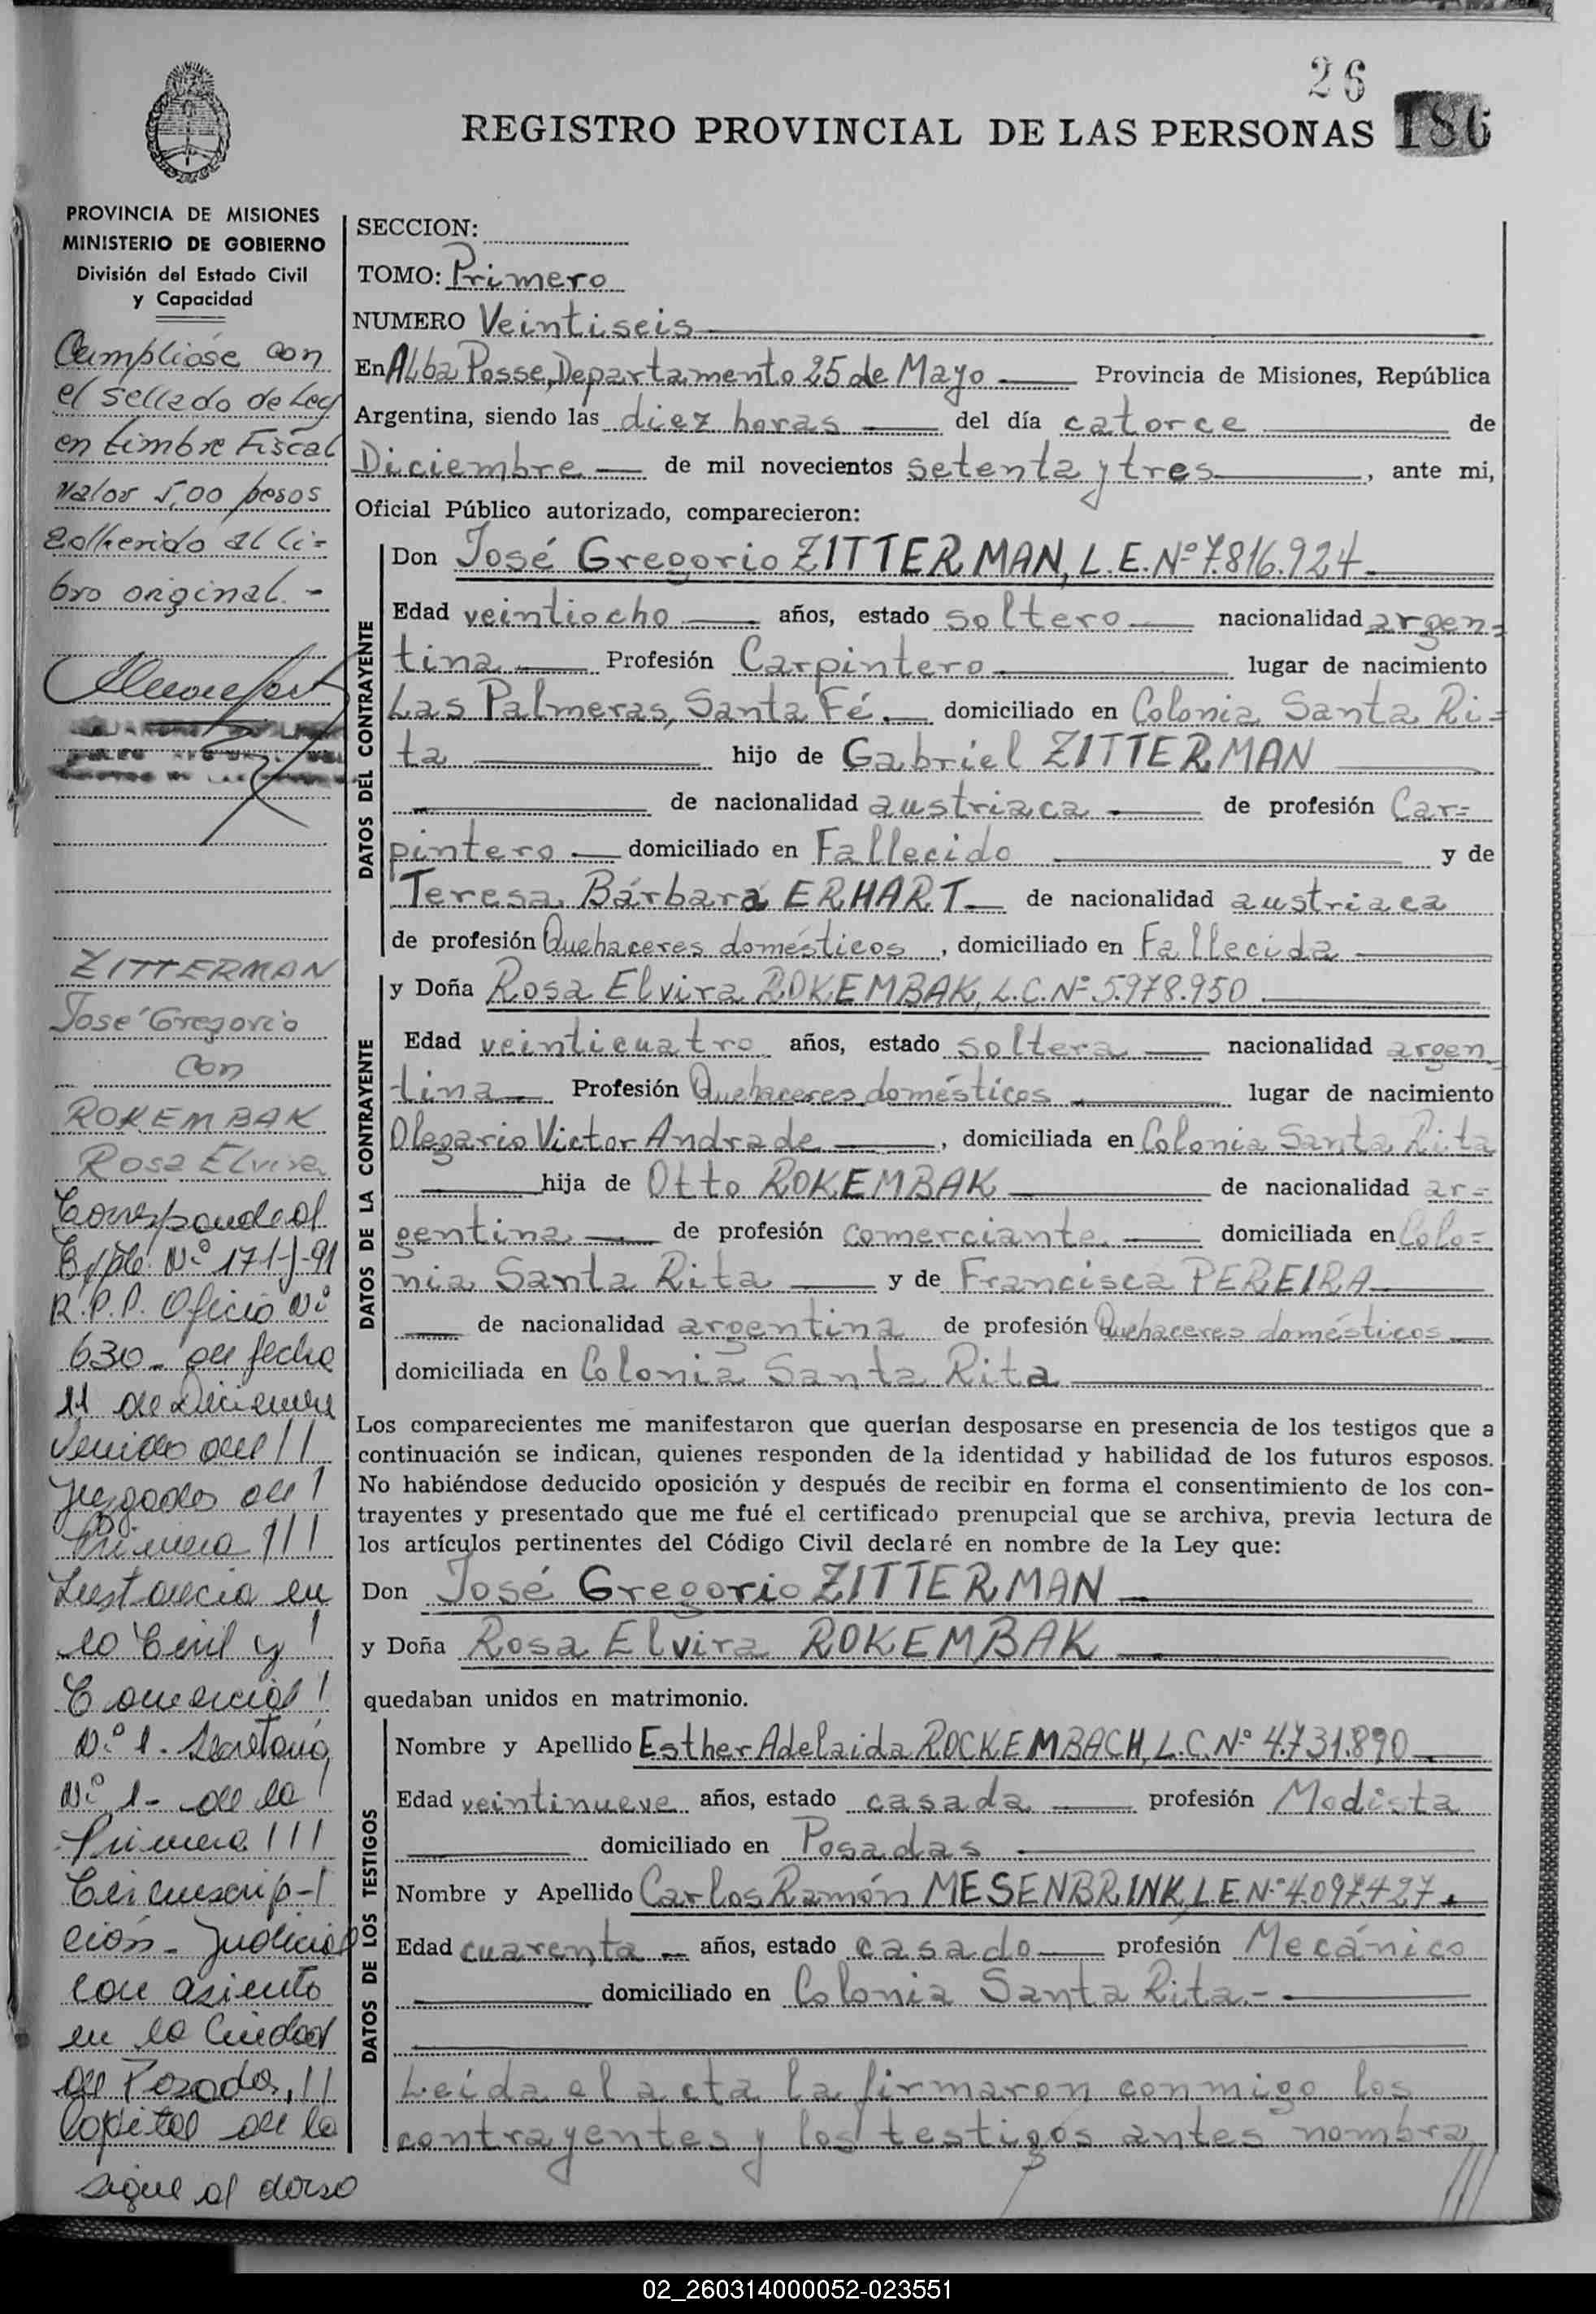 26
REGISTRO PROVINCIAL DE LAS PERSONAS 186
PROVINCIA DE MISIONES
MINISTERIO DE GOBIERNO
División del Estado Civil
y Capacidad
Cumplióse con
el sellado de Ley
en timbre Fiscal
valor 5,00 pesos
adherido al li=
bro original.-
ZITTERMAN
José Gregorio
con
ROKEMBAK
Rosa Elvira
Corresponde al
Expte. Nº 171-J-91
R.P.P. Oficio Nº
630- de fecha
11 de Diciembre
venido del //
Juzgado de /
Primera ///
Instancia en
lo Civil y /
Comercial /
Nº 1. Secretaria
Nº 1- de la /
Primera ///
Circunscrip-/
ción- Judicial
con asiento
en la Ciudad
de Posadas, //
Capital de la
sigue al dorso
SECCION:
TOMO: Primero
NUMERO Veintiseis
En Alba Posse, Departamento 25 de Mayo Provincia de Misiones, República
Argentina, siendo las diez horas del día catorce de
Diciembre de mil novecientos setenta y tres, ante mi,
Oficial Público autorizado, comparecieron:
DATOS DEL CONTRAYENTE
Don José Gregorio ZITTERMAN, L.E.Nº 7.816.924
Edad veintiocho años, estado soltero nacionalidad argen=
tina Profesión Carpintero lugar de nacimiento
Las Palmeras, Santa Fé. domiciliado en Colonia Santa Ri=
ta hijo de Gabriel ZITTERMAN
de nacionalidad austriaca de profesión Car=
pintero domiciliado en Fallecido y de
Teresa Bárbara ERHART de nacionalidad austriaca
de profesión Quehaceres domésticos, domiciliado en Fallecida
DATOS DE LA CONTRAYENTE
y Doña Rosa Elvira ROKEMBAK, L.C.Nº 5.978.950
Edad veinticuatro años, estado soltera nacionalidad argen
tina Profesión Quehaceres domésticos lugar de nacimiento
Olegario Victor Andrade, domiciliada en Colonia Santa Rita
hija de Otto ROKEMBAK de nacionalidad ar=
gentina de profesión comerciante domiciliada en Colo=
nia Santa Rita y de Francisca PEREIRA
de nacionalidad argentina de profesión Quehaceres domésticos
domiciliada en Colonia Santa Rita
Los comparecientes me manifestaron que querían desposarse en presencia de los testigos que a
continuación se indican, quienes responden de la identidad y habilidad de los futuros esposos.
No habiéndose deducido oposición y después de recibir en forma el consentimiento de los con-
trayentes y presentado que me fué el certificado prenupcial que se archiva, previa lectura de
los artículos pertinentes del Código Civil declaré en nombre de la Ley que:
Don José Gregorio ZITTERMAN
y Doña Rosa Elvira ROKEMBAK
quedaban unidos en matrimonio.
DATOS DE LOS TESTIGOS
Nombre y Apellido Esther Adelaida ROCKEMBACH, L.C.Nº 4.731.890
Edad veintinueve años, estado casada profesión Modista
domiciliado en Posadas
Nombre y Apellido Carlos Ramón MESENBRINK, L.E.Nº 4.097.427.
Edad cuarenta años, estado casado profesión Mecánico
domiciliado en Colonia Santa Rita.-
Leída el acta la firmaron conmigo los
contrayentes y los testigos antes nombra
///
02_260314000052-023551